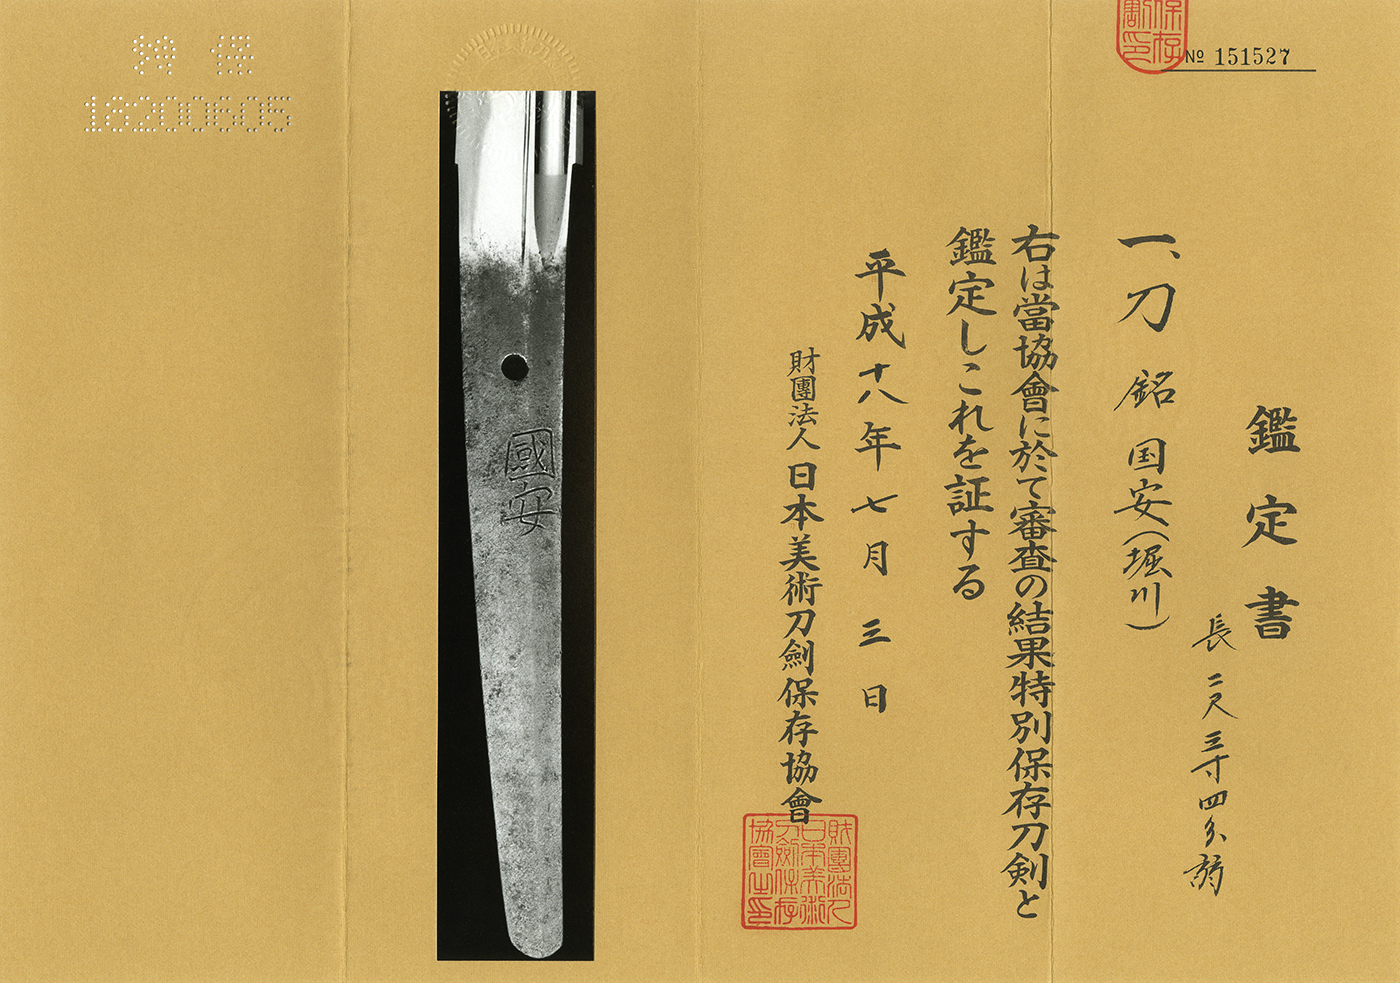 № 151527
鑑定書
一、刀 銘 国安(堀川)
長二尺三寸四分弱
右は當協會に於て審査の結果特別保存刀剣と
鑑定しこれを証する
平成十八年七月三日
財團法人日本美術刀劍保存協會
財團法人
日本美術
刀劍保存
協會之印
保存
割印
國安
特保
18200605